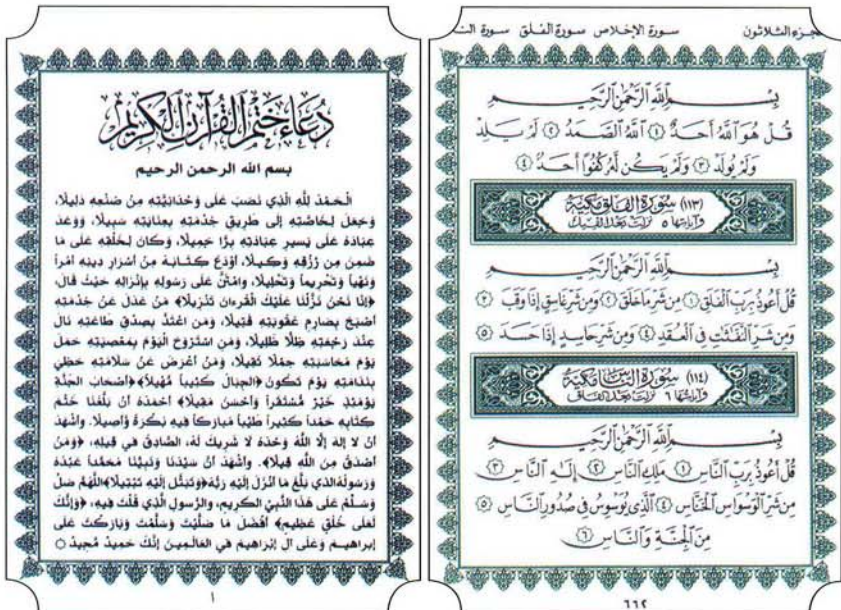 جزء الثلاثون سورة الإخلاص سورة الفلق سورة
بِسْمِ ٱللَّهِ ٱلرَّحْمَٰنِ ٱلرَّحِيمِ
قُلْ هُوَ ٱللَّهُ أَحَدٌ ١ ٱللَّهُ ٱلصَّمَدُ ٢ لَمْ يَلِدْ
وَلَمْ يُولَدْ ٣ وَلَمْ يَكُن لَّهُۥ كُفُوًا أَحَدٌ ٤
(١١٣) سورة الفلق مكية
وآياتها ٥ نزلت بعد الفيل
بِسْمِ ٱللَّهِ ٱلرَّحْمَٰنِ ٱلرَّحِيمِ
قُلْ أَعُوذُ بِرَبِّ ٱلْفَلَقِ ١ مِن شَرِّ مَا خَلَقَ ٢ وَمِن شَرِّ غَاسِقٍ إِذَا وَقَبَ ٣
وَمِن شَرِّ ٱلنَّفَّٰثَٰتِ فِى ٱلْعُقَدِ ٤ وَمِن شَرِّ حَاسِدٍ إِذَا حَسَدَ ٥
(١١٤) سورة الناس مكية
وآياتها ٦ نزلت بعد الفلق
بِسْمِ ٱللَّهِ ٱلرَّحْمَٰنِ ٱلرَّحِيمِ
قُلْ أَعُوذُ بِرَبِّ ٱلنَّاسِ ١ مَلِكِ ٱلنَّاسِ ٢ إِلَٰهِ ٱلنَّاسِ ٣
مِن شَرِّ ٱلْوَسْوَاسِ ٱلْخَنَّاسِ ٤ ٱلَّذِى يُوَسْوِسُ فِى صُدُورِ ٱلنَّاسِ ٥
مِنَ ٱلْجِنَّةِ وَٱلنَّاسِ ٦
٦٦٢
دُعَاءُ خَتْمِ الْقُرْآنِ الْكَرِيمِ
بسم الله الرحمن الرحيم
الْحَمْدُ لِلَّهِ الَّذِي نَصَبَ عَلَى وَحْدَانِيَّتِهِ مِنْ صُنْعِهِ دَلِيلًا،
وَجَعَلَ لِخَاصَّتِهِ إِلَى طَرِيقِ خِدْمَتِهِ بِعِنَايَتِهِ سَبِيلًا، وَوَعَدَ
عِبَادَهُ عَلَى يَسِيرِ عِبَادَتِهِ بِرًّا جَمِيلًا، وَكَانَ لِخَلْقِهِ عَلَى مَا
ضَمِنَ مِن رِزْقِهِ وَكِيلًا، أَوْدَعَ كِتَابَهُ مِنْ أَسْرَارِ دِينِهِ أَمْراً
وَنَهْياً وَتَحْرِيماً وَتَحْلِيلًا، وَامْتَنَّ عَلَى رَسُولِهِ بِإِنْزَالِهِ حَيْثُ قَالَ،
﴿إِنَّا نَحْنُ نَزَّلْنَا عَلَيْكَ الْقُرْءَانَ تَنْزِيلًا﴾ مَنْ عَدَلَ عَنْ خِدْمَتِهِ
أَصْبَحَ بِصَارِمِ عُقُوبَتِهِ قَتِيلًا، وَمَنِ اعْتَدَّ بِصِدْقِ طَاعَتِهِ نَالَ
عِنْدَ رَجْعَتِهِ ظِلًّا ظَلِيلًا، وَمَنِ اسْتَرْوَحَ الْيَوْمَ بِمَعْصِيَتِهِ حَمَلَ
يَوْمَ مُحَاسَبَتِهِ حِمْلًا ثَقِيلًا، وَمَنْ أَعْرَضَ عَنْ سَلَامَتِهِ حَظِيَ
بِنَدَامَتِهِ يَوْمَ تَكُونُ ﴿الْجِبَالُ كَثِيباً مَّهِيلًا﴾ ﴿أَصْحَابُ الْجَنَّةِ
يَوْمَئِذٍ خَيْرٌ مُّسْتَقَرًّا وَأَحْسَنُ مَقِيلًا﴾ أَحْمَدُهُ أَنْ بَلَّغَنَا خَتْمَ
كِتَابِهِ حَمْداً كَثِيراً طَيِّباً مُبَارَكاً فِيهِ بُكْرَةً وَأَصِيلًا. وَأَشْهَدُ
أَنْ لَا إِلٰهَ إِلَّا اللَّهُ وَحْدَهُ لَا شَرِيكَ لَهُ، الصَّادِقُ فِي قِيلِهِ، ﴿وَمَنْ
أَصْدَقُ مِنَ اللَّهِ قِيلًا﴾. وَأَشْهَدُ أَنَّ سَيِّدَنَا وَنَبِيَّنَا مُحَمَّداً عَبْدُهُ
وَرَسُولُهُ الَّذِي بَلَّغَ مَا أُنْزِلَ إِلَيْهِ رَبُّهُ ﴿وَتَبَتَّلْ إِلَيْهِ تَبْتِيلًا﴾ اللَّهُمَّ صَلِّ
وَسَلِّمْ عَلَى هَذَا النَّبِيِّ الْكَرِيمِ، وَالرَّسُولِ الَّذِي قُلْتَ فِيهِ، ﴿وَإِنَّكَ
لَعَلَى خُلُقٍ عَظِيمٍ﴾ أَفْضَلَ مَا صَلَّيْتَ وَسَلَّمْتَ وَبَارَكْتَ عَلَى
إِبْرَاهِيمَ وَعَلَى آلِ إِبْرَاهِيمَ فِي الْعَالَمِينَ إِنَّكَ حَمِيدٌ مَجِيدٌ
١